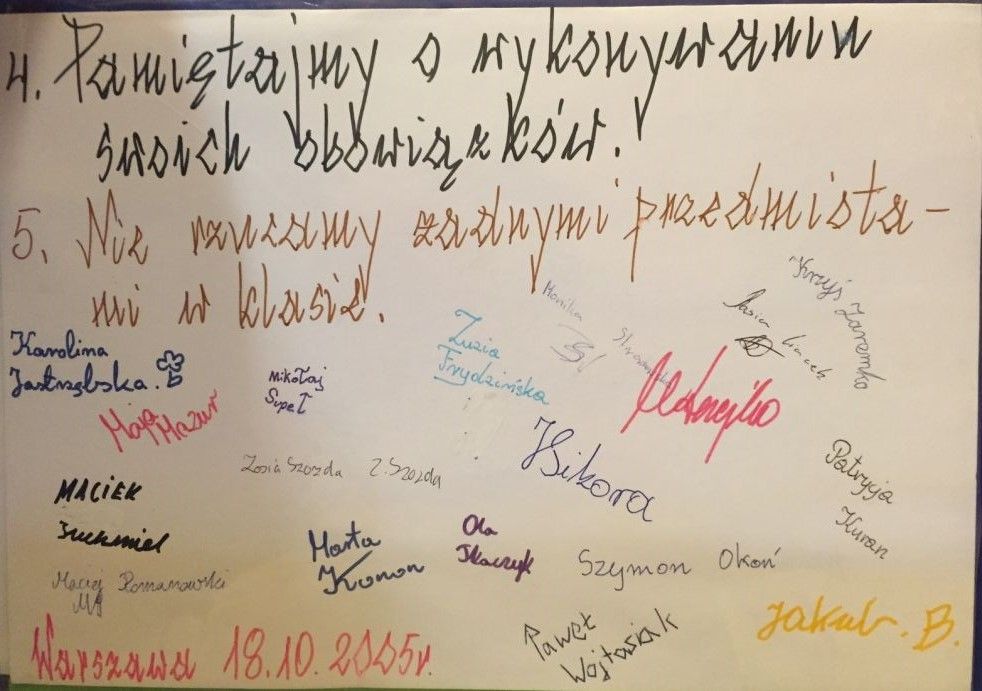 4. Pamiętajmy o wykonywaniu
swoich obowiązków!
5. Nie rzucamy zadnymi przedmiota-
mi w klasie.
Monika
Krzyś Zaremba
Karolina
Jastrzębska.
Zuzia
Frydzińska
Mikołaj
Supeł
Maja Mazur
Zosia Szozda Z. Szozda
Sikora
Patrycja
Kuran
MACIEK
Marta
Kronon
Ola
Tkaczyk
Szymon Okoń
Maciej Romanowski
MR
Paweł
Wojtasiak
Jakub. B.
Warszawa 18.10.2005r.